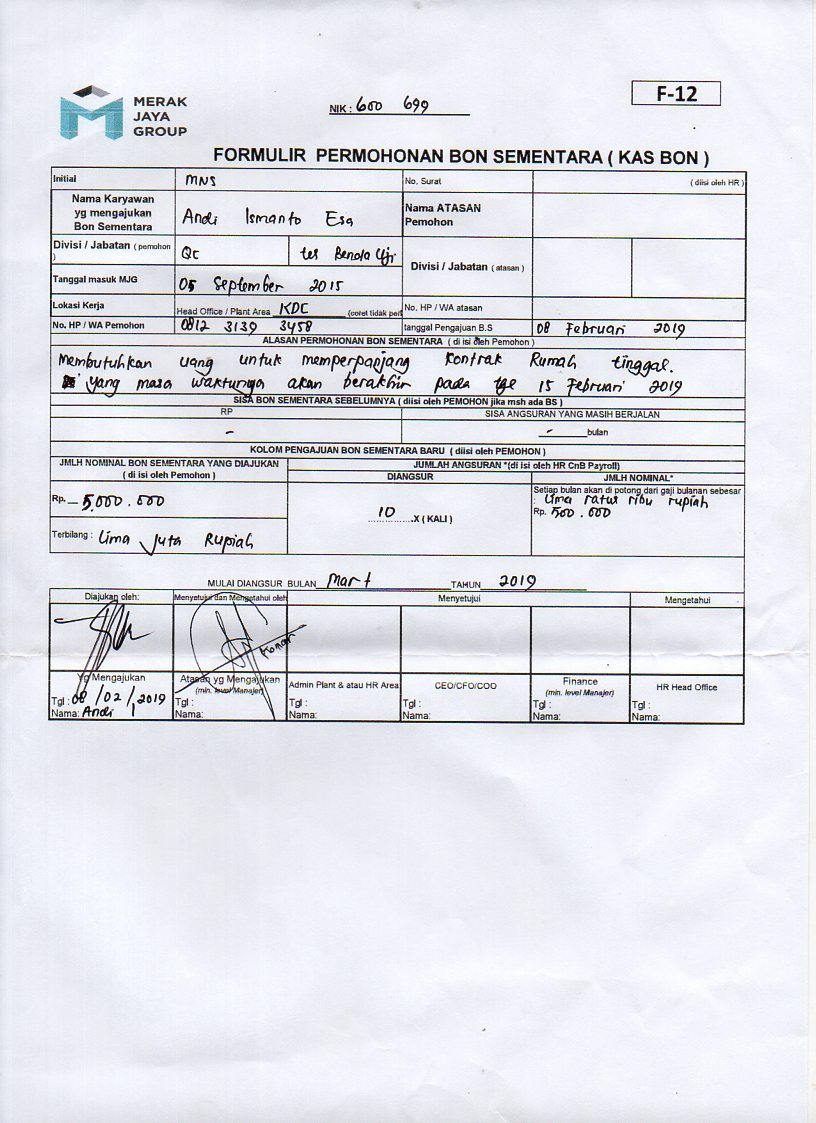 MERAK
JAYA
GROUP
NIK : 600 699
F-12
FORMULIR PERMOHONAN BON SEMENTARA ( KAS BON )
Initial MNS No. Surat ( diisi oleh HR )
Nama Karyawan
yg mengajukan
Bon Sementara
Andi Ismanto Esa
Nama ATASAN
Pemohon
Divisi / Jabatan ( pemohon
)
QC tes Benda Uji
Divisi / Jabatan ( atasan )
Tanggal masuk MJG 05 September 2015
Lokasi Kerja Head Office / Plant Area KDC (coret tidak perl No. HP / WA atasan
No. HP / WA Pemohon 0812 3139 3458 tanggal Pengajuan B.S 08 Februari 2019
ALASAN PERMOHONAN BON SEMENTARA ( di isi oleh Pemohon )
Membutuhkan uang untuk memperpanjang kontrak Rumah tinggal.
yang masa waktunya akan berakhir pada tgl 15 Februari 2019
SISA BON SEMENTARA SEBELUMNYA ( diisi oleh PEMOHON jika msh ada BS )
RP SISA ANGSURAN YANG MASIH BERJALAN
- - bulan
KOLOM PENGAJUAN BON SEMENTARA BARU ( diisi oleh PEMOHON )
JMLH NOMINAL BON SEMENTARA YANG DIAJUKAN
( di isi oleh Pemohon )
JUMLAH ANGSURAN *(di isi oleh HR CnB Payroll)
DIANGSUR JMLH NOMINAL*
Rp. 5.000.000
Terbilang : Lima Juta Rupiah
10 ...............X ( KALI )
Setiap bulan akan di potong dari gaji bulanan sebesar
: Lima ratus ribu rupiah
Rp. 500.000
MULAI DIANGSUR BULAN Mart TAHUN 2019
Diajukan oleh: Menyetujui dan Mengetahui oleh Menyetujui Mengetahui
Yg Mengajukan
Tgl : 08 / 02 / 2019
Nama: Andi I
Konar
Atasan yg Mengajukan
(min. level Manajer)
Tgl :
Nama:
Admin Plant & atau HR Area
Tgl :
Nama:
CEO/CFO/COO
Tgl :
Nama:
Finance
(min. level Manajer)
Tgl :
Nama:
HR Head Office
Tgl :
Nama: